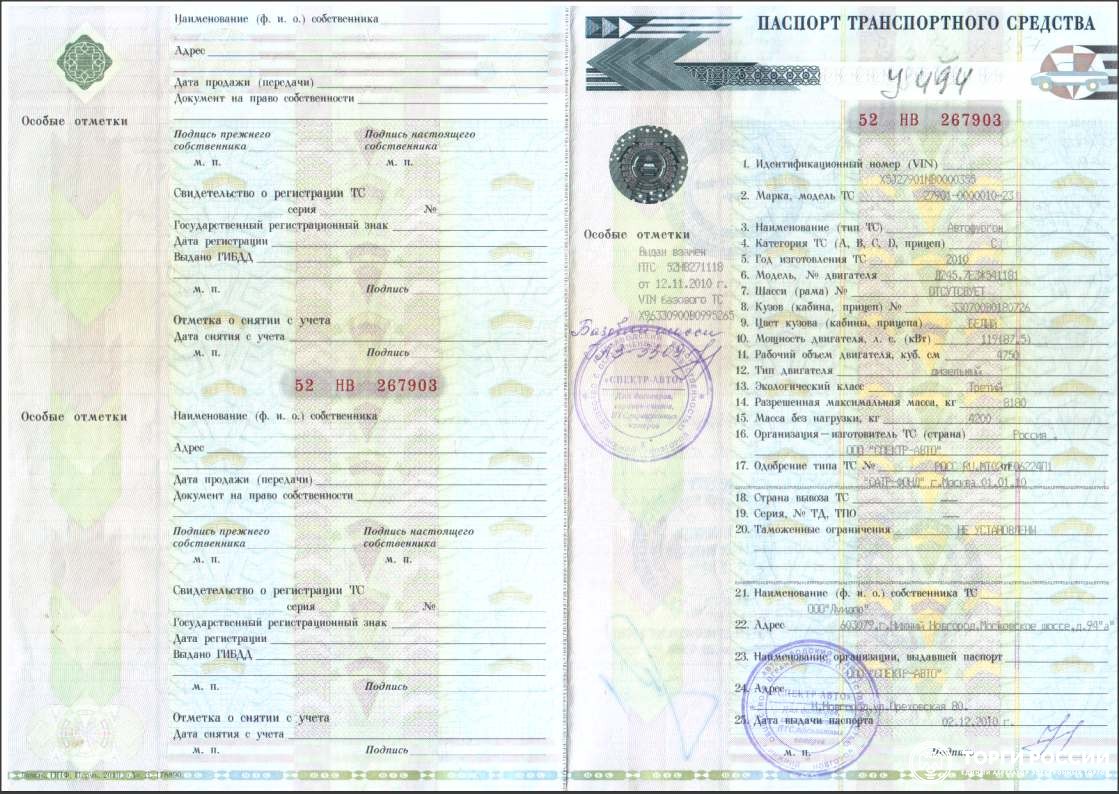 Наименование (ф. и. о.) собственника
Адрес
Дата продажи (передачи)
Документ на право собственности
Особые отметки
Подпись прежнего собственника
Подпись настоящего собственника
м. п.
м. п.
Свидетельство о регистрации ТС
серия №
Государственный регистрационный знак
Дата регистрации
Выдано ГИБДД
м. п. Подпись
Отметка о снятии с учета
Дата снятия с учета
м. п. Подпись
52 НВ 267903
Особые отметки
Наименование (ф. и. о.) собственника
Адрес
Дата продажи (передачи)
Документ на право собственности
Подпись прежнего собственника
Подпись настоящего собственника
м. п.
м. п.
Свидетельство о регистрации ТС
серия №
Государственный регистрационный знак
Дата регистрации
Выдано ГИБДД
м. п. Подпись
Отметка о снятии с учета
Дата снятия с учета
м. п. Подпись
ПАСПОРТ ТРАНСПОРТНОГО СРЕДСТВА
У 494
52 НВ 267903
Особые отметки
Выдан взамен
ПТС 52НВ271118
от 12.11.2010 г.
VIN базового ТС
Х96330900В0995265
Базовый шасси
ГАЗ-3309
«СПЕКТР-АВТО»
Для договоров,
1. Идентификационный номер (VIN)
X5J27901NB0000395
2. Марка, модель ТС 27901-0000010-23
3. Наименование (тип ТС) Автофургон
4. Категория ТС (А, В, С, D, прицеп) С
5. Год изготовления ТС 2010
6. Модель, № двигателя Д245.7Е3Ж541181
7. Шасси (рама) № ОТСУТСВУЕТ
8. Кузов (кабина, прицеп) № 330700В0180726
9. Цвет кузова (кабины, прицепа) БЕЛЫЙ
10. Мощность двигателя, л. с. (кВт) 119(87.5)
11. Рабочий объем двигателя, куб. см 4750
12. Тип двигателя дизельный
13. Экологический класс Третий
14. Разрешенная максимальная масса, кг 8180
15. Масса без нагрузки, кг 4200
16. Организация–изготовитель ТС (страна) Россия ,
ООО "СПЕКТР-АВТО"
17. Одобрение типа ТС № РОСС RU.МТ02 от
"САТР-ФОНД" г.Москва 01.01.10
18. Страна вывоза ТС ---
19. Серия, № ТД, ТПО ---
20. Таможенные ограничения НЕ УСТАНОВЛЕНЫ
21. Наименование (ф. и. о.) собственника ТС
22. Адрес 603079,г.Нижний Новгород,Московское шоссе,д.94"а"
23. Наименование организации, выдавшей паспорт
ООО "СПЕКТР-АВТО"
24. Адрес
Н.Новгород,ул.Ореховская 80.
25. Дата выдачи паспорта 02.12.2010 г.
м. п. Подпись
«СПЕКТР-АВТО»
ТОРГИ РОССИИ